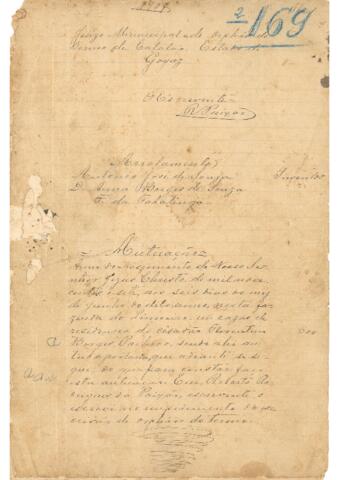 1907
2
169
Juizo Municipal e de Orphãos do
Termo de Catalão, Estado de
Goyaz
Escrevente
R. Paixão
Arrolamento
Antonio José de Souza
D. Anna Borges de Souza
F. da Tabatinga
Autuação
Anno do Nascimento de Nosso Se-
nhor Jesus Christo de mil nove
centos e sete, aos seis dias do mez
de Junho do dito anno, nesta fa-
zenda do em casas de
residencia do cidadão
Borges Pacheco, sendo ahi au-
tuo a portaria que adiante se se-
gue, do que para constar faço
esta autuação. Eu, Roberto
da Paixão, escrevente, o
escrevi no impedimento do es-
crivão de orphãos do termo.